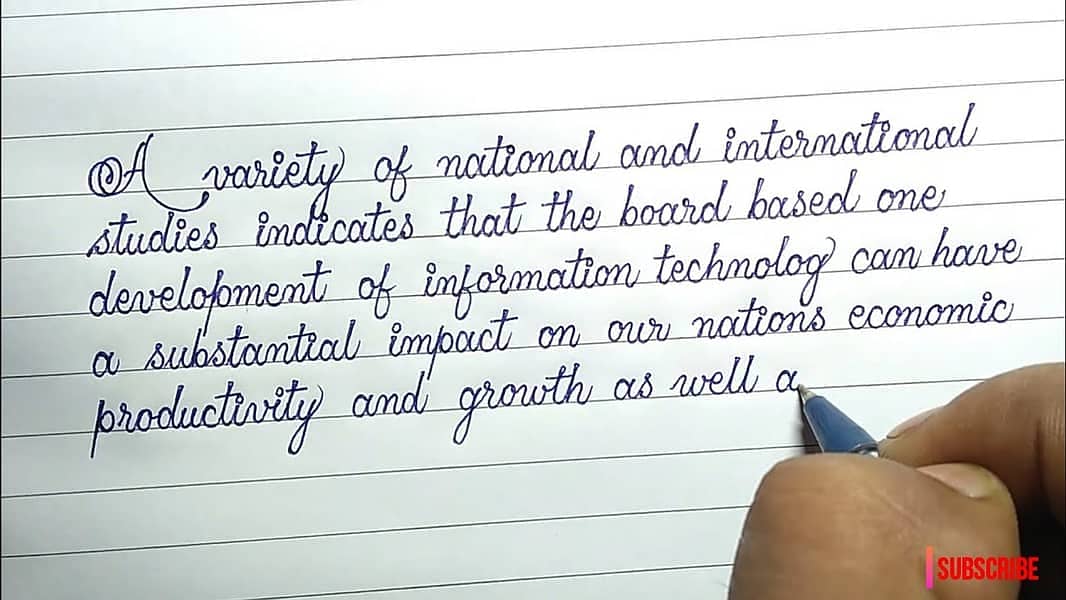 A variety of national and international
studies indicates that the board based one
development of information technolog can have
a substantial impact on our nations economic
productivity and growth as well a
SUBSCRIBE